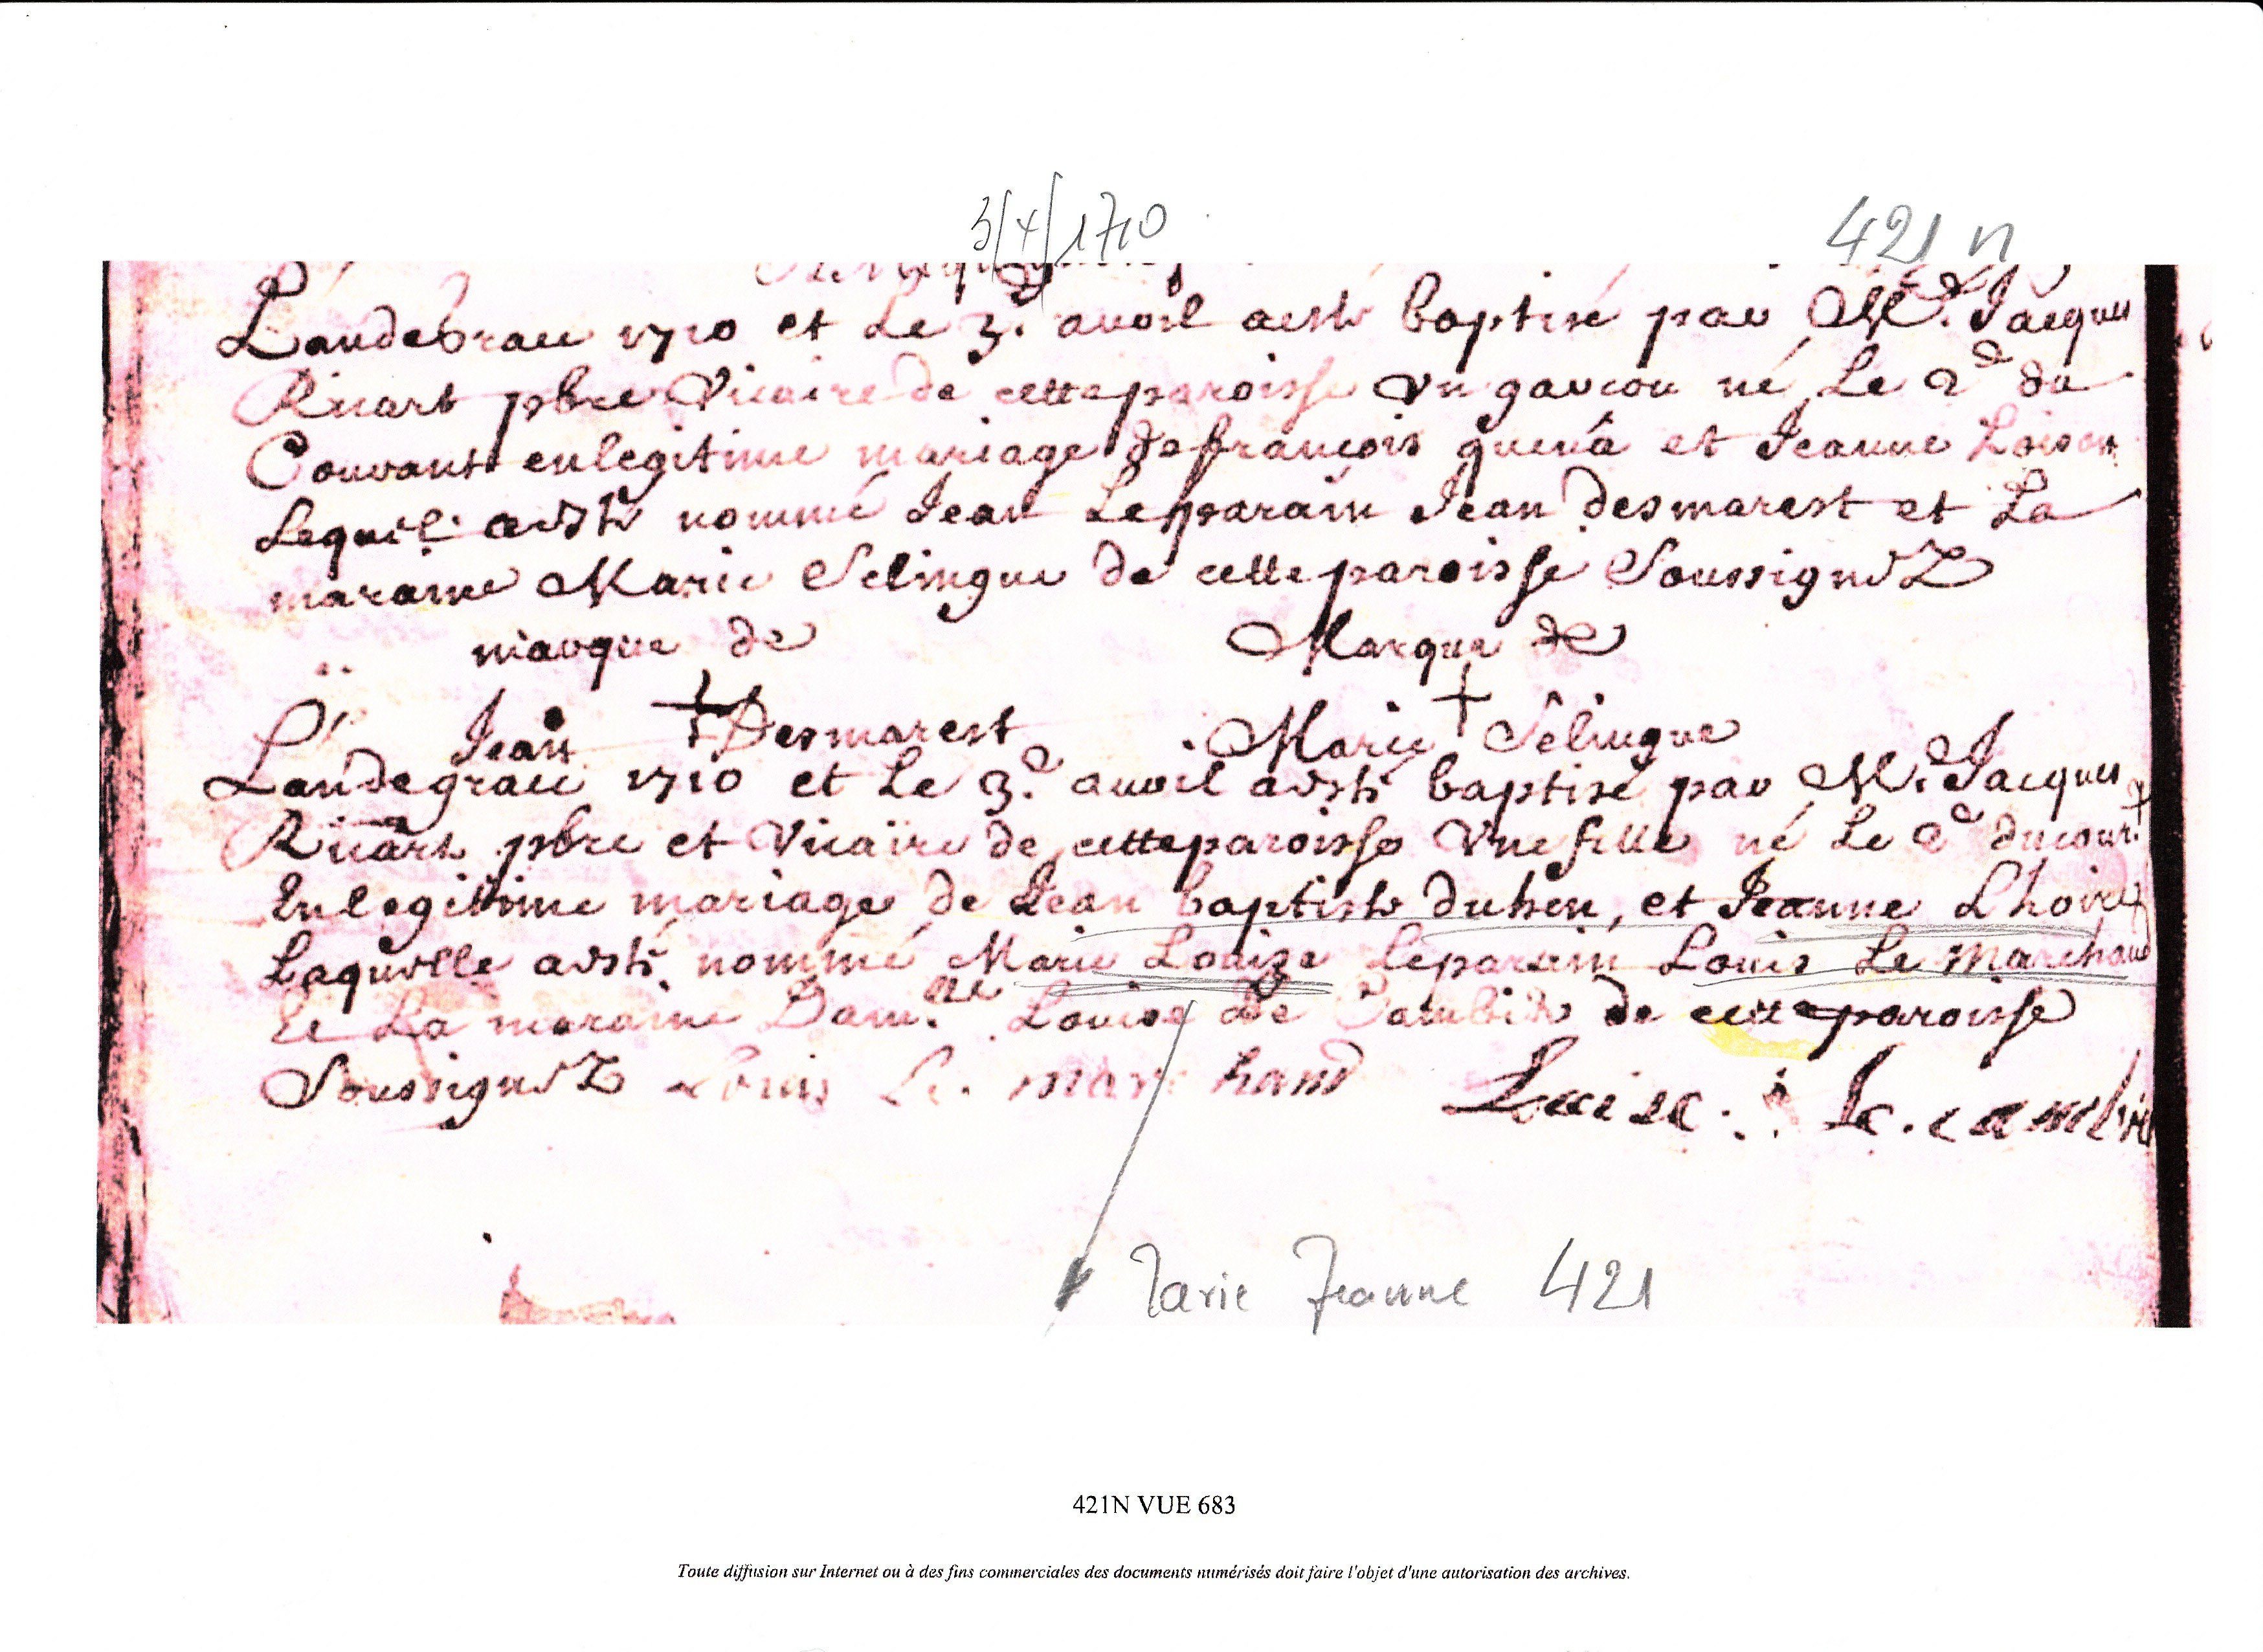 3/4/1710
421 n
Landegrace 1710 et Le 3.e avril aesté baptisé par Mr. Jacques
Ricart pbre Vicaire de cette paroisse Un garcon né Le 2e du
Couvant en legitime mariage de francois quená et Jeanne Loison
Lequel aesté nommé Jean Le parain Jean desmarest et La
maraine Marie Selingue de cette paroisse Soussignez
marque de Marque de
Jean Desmarest Marie Selingue
L'andegrace 1710 et Le 3.e avril aesté baptisé par Mr. Jacques
Ricart pbre et Vicaire de cette paroisse Une fille né Le 2e du cour.
En legitime mariage de Jean baptiste duhen, et Jeanne Lhoire
Laquelle aesté nommé Marie Louize Le parain Louis Le Marchand
Et La maraine Dam.lle Louise de de cette paroisse
Soussignez Louis Le marchand Louise
Marie Jeanne 421
421N VUE 683
Toute diffusion sur Internet ou à des fins commerciales des documents numérisés doit faire l'objet d'une autorisation des archives.